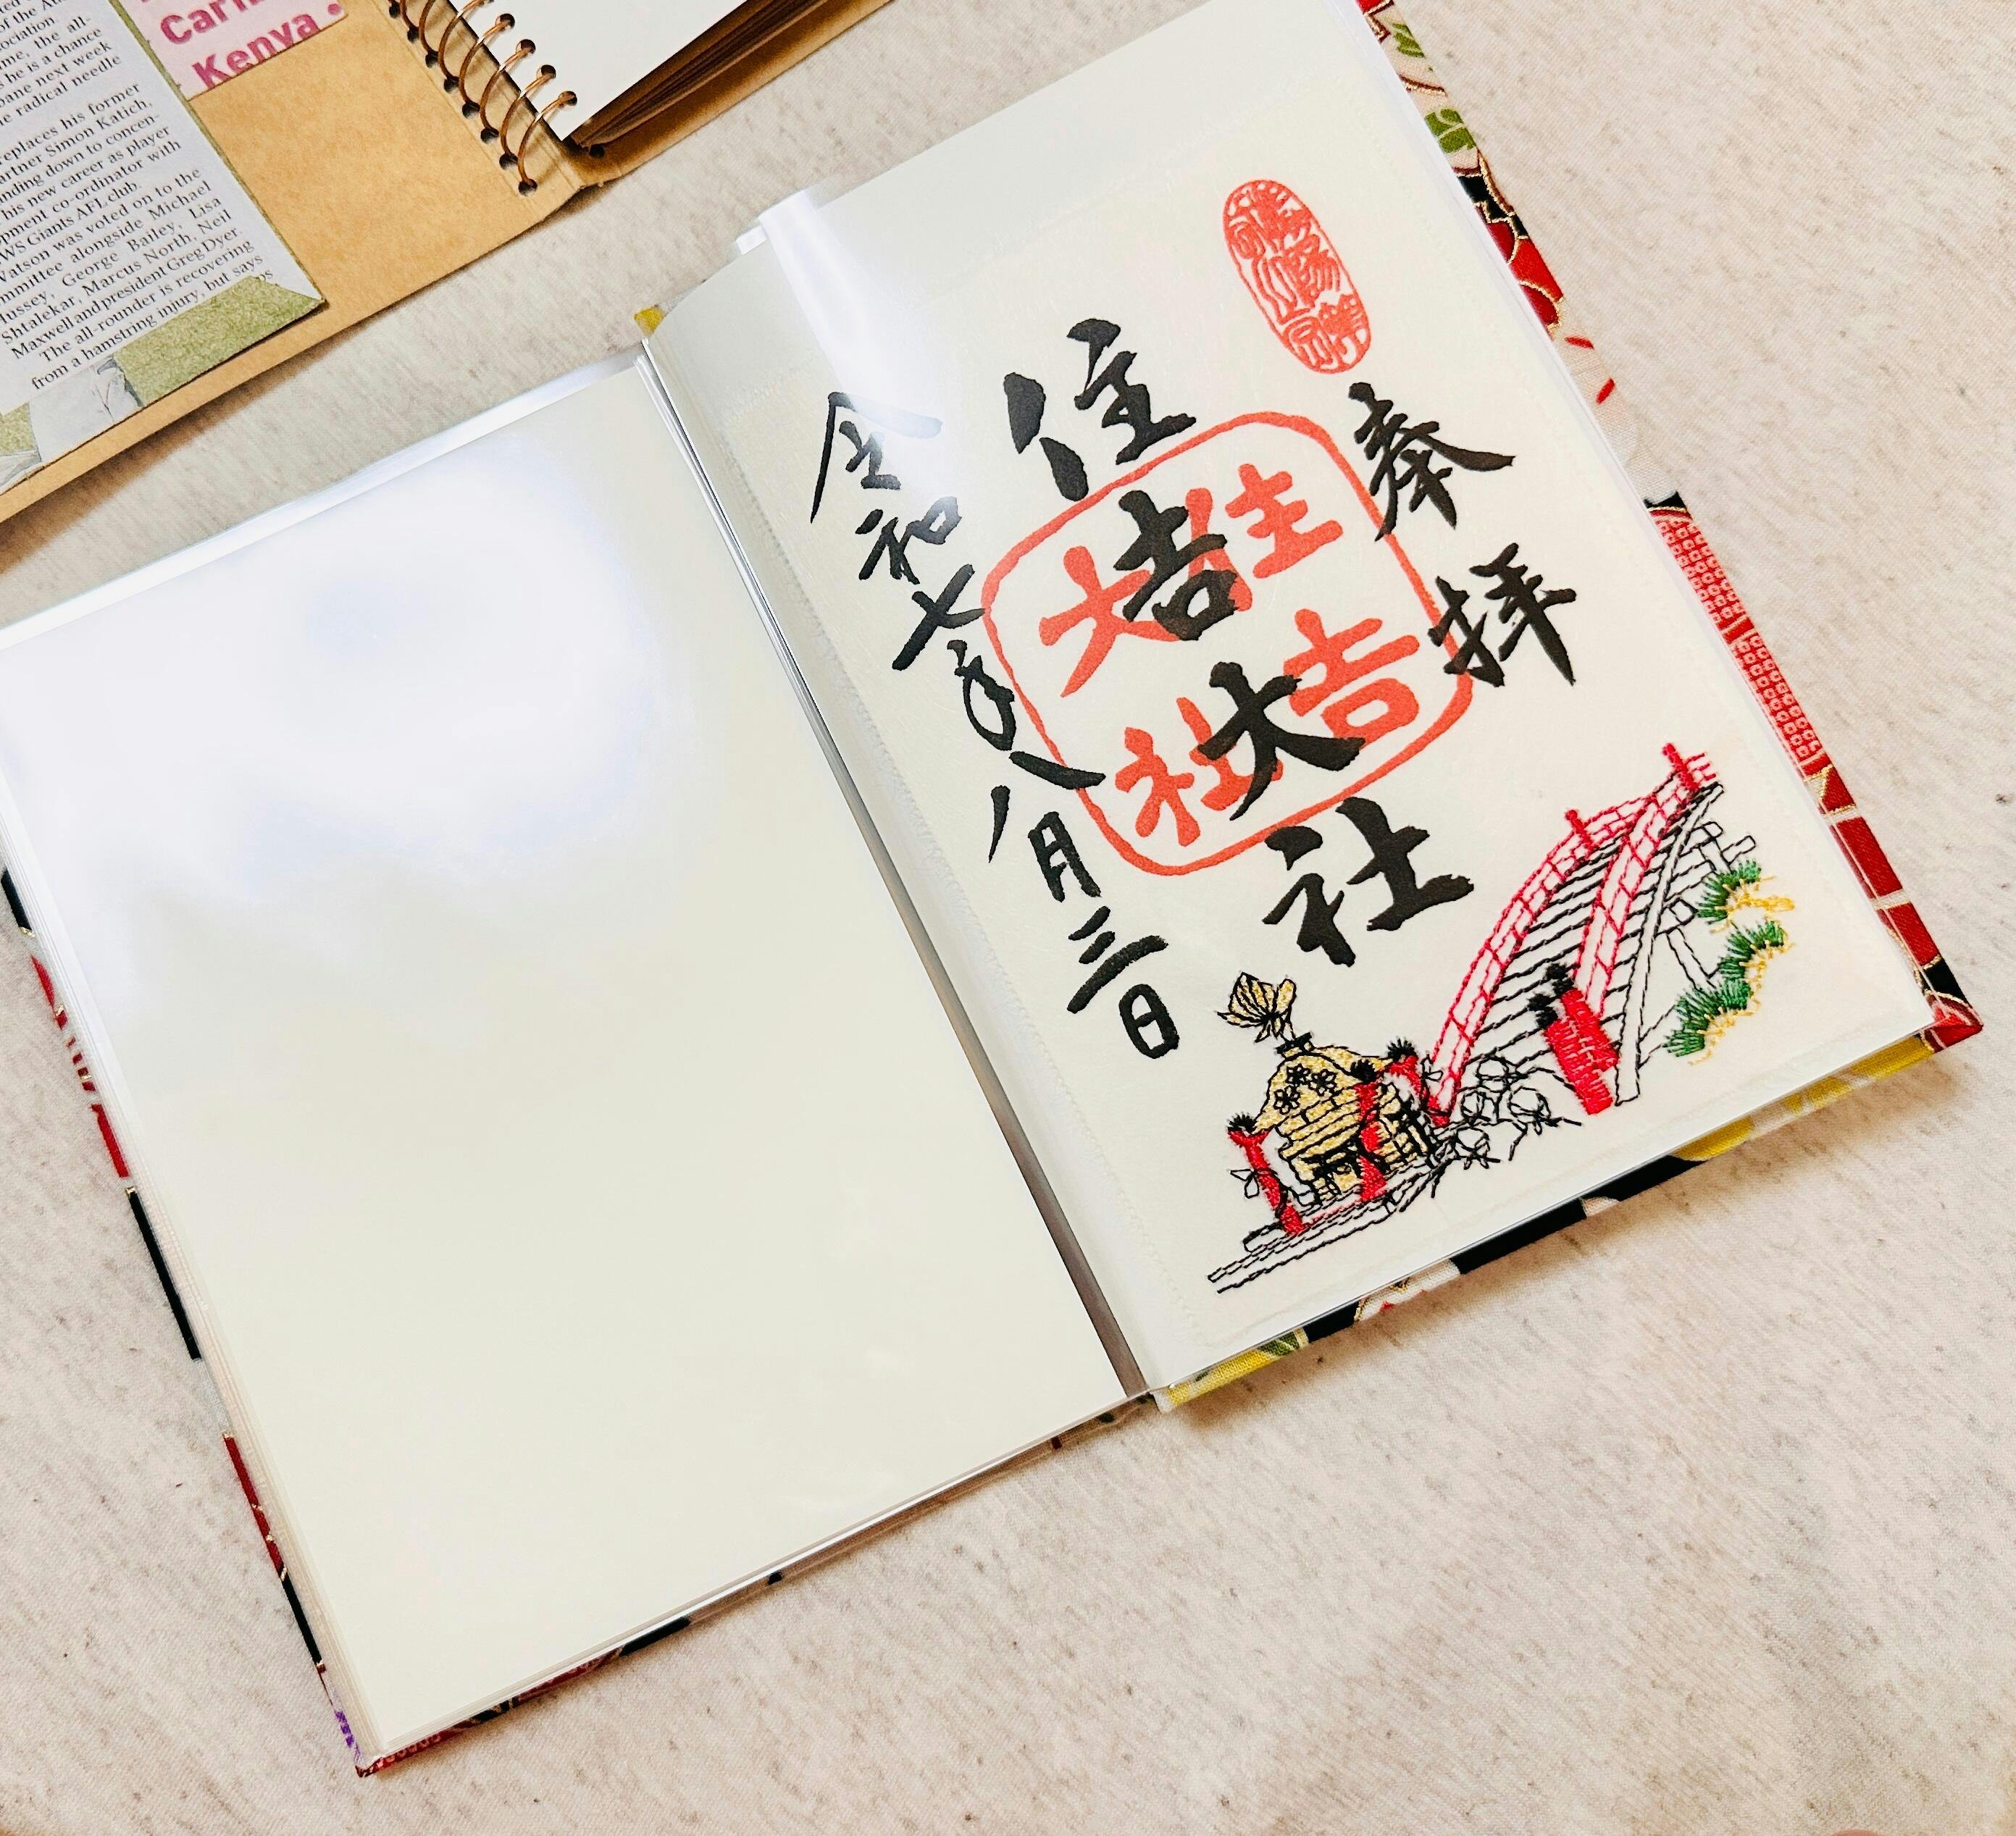 奉拝
住吉大社
令和七年八月三日
住吉
大社
Kenya
me, the all-
he is a chance
bane next week
e radical needle
replaces his former
artner Simon Katich,
nding down to concen-
his new career as player
pment co-ordinator with
WS Giants AFL club.
Watson was voted on to the
mmittee alongside Michael
Hussey, George Bailey, Lisa
Shtalekar, Marcus North, Neil
Maxwell and president Greg Dyer.
The all-rounder is recovering
from a hamstring injury, but says